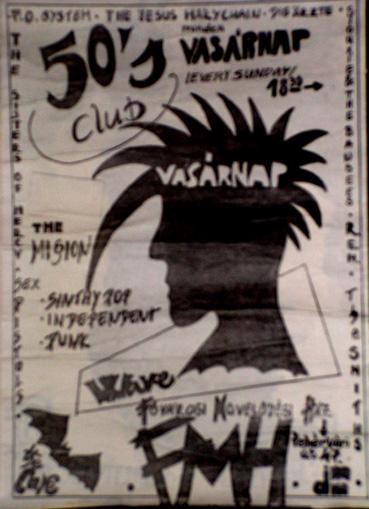 P.O. SYSTEM · THE JESUS MARYCHAIN · DIE ÄRZTE ·
SIOUXIE & THE BANSHEES · R.E.M. · THE SMITHS
THE SISTERS OF MERCY · SEX PISTOLS ·
50's
Club
minden
VASÁRNAP
(EVERY SUNDAY!
18⁰⁰ →
VASÁRNAP
THE
MISION
· SINTHY POP
· INDEPENDENT
· PUNK
FŐVÁROSI MŰVELŐDÉSI HÁZ
FMH
Fehérvári
út 47.